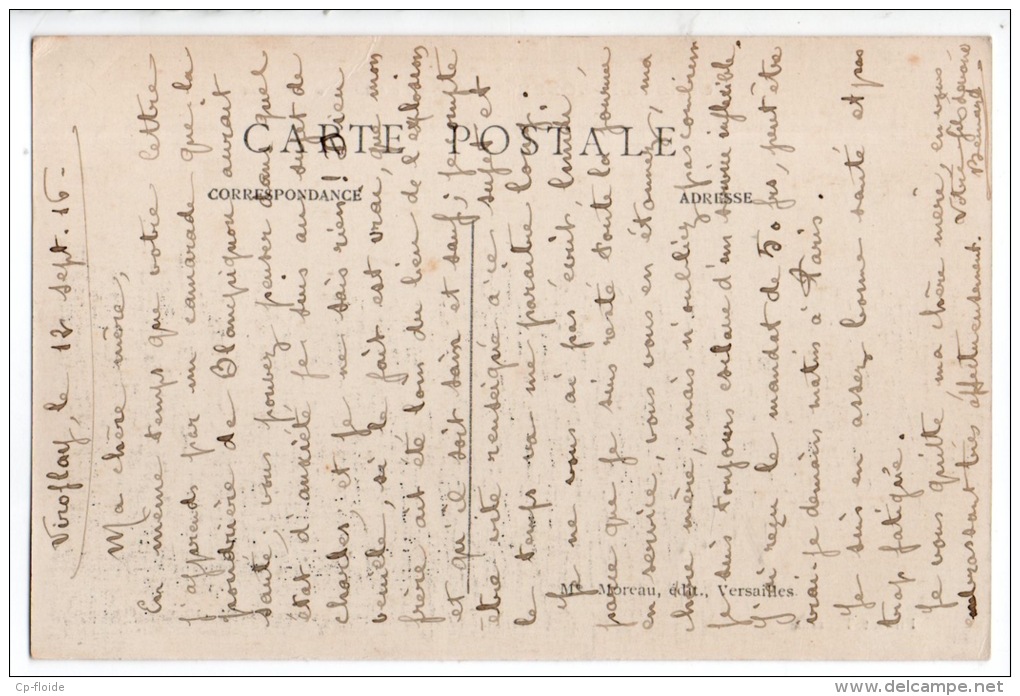 CARTE POSTALE
CORRESPONDANCE
ADRESSE
Mᵉ Moreau, édit., Versailles
Viroflay, le 12 sept. 16 -
Ma chère mère,
En même temps que votre lettre
j'apprends par un camarade que la
poudrière de Blanquignon aurait
sauté, vous pouvez penser dans quel
état d'anxiété je suis au sujet de
Charles, et je ne sais rien! Dieu
veuille, si le fait est vrai, que mon
frère ait été loin du lieu de l'explosion
et qu'il soit sain et sauf; je compte
être vite renseigné à ce sujet et
le temps va me paraître long.
Je ne vous ai pas écrit lundi
parce que je suis resté toute la journée
en service, vous vous en étonnez, ma
chère mère, mais n'oubliez pas combien
je suis toujours esclave d'un service inflexible.
J'ai reçu le mandat de 50 frs, peut être
irai-je demain matin à Paris.
Je suis en assez bonne santé et pas
trop fatigué.
Je vous quitte ma chère mère, en vous
embrassant très affectueusement. Votre fils dévoué